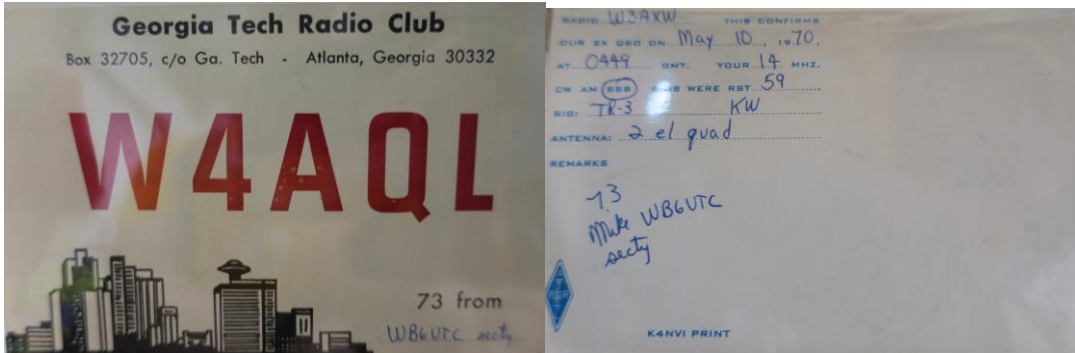 Georgia Tech Radio Club
Box 32705, c/o Ga. Tech - Atlanta, Georgia 30332
W4AQL
73 from
WB6VTC secty
RADIO W3AXW THIS CONFIRMS
OUR SX QSO ON May 10, 1970,
AT 0449 GMT. YOUR 14 MHZ.
CW AM SSB SIGS WERE RST 59
RIG: TR-3 KW
ANTENNA: 2 el quad
REMARKS
73
Mike WB6VTC
secty
K4NVI PRINT